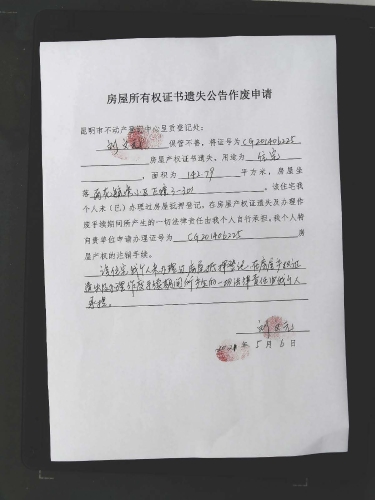 房屋所有权证书遗失公告作废申请
昆明市不动产登记中心呈贡登记处：
刘 保管不善，将证号为CG201406225
房屋产权证书遗失，用途为 住宅
，面积为 142.79 平方米，房屋坐
落 小区 3-301 ，该住宅我
个人未（已）办理过房屋抵押登记。在房屋产权证遗失及办理作
废手续期间所产生的一切法律责任由我个人自行承担。我个人特
向贵单位申请办理证号为 CG201406225 房
屋产权的注销手续。
该住宅我个人未办理过房屋抵押登记，在房屋产权证
遗失及办理作废手续期间所产生的一切法律责任由我个人
承担。
刘 元
年 5 月 6 日